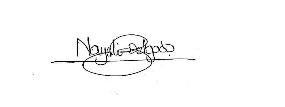 Nayeli Delgado